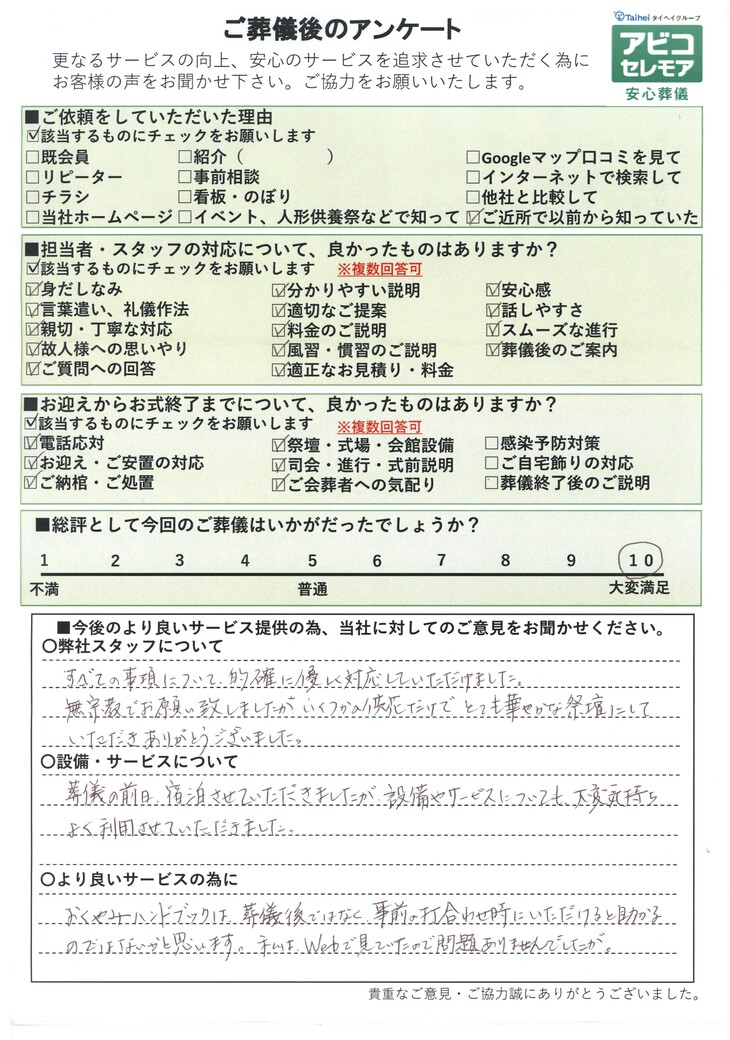 ご葬儀後のアンケート
Taihei タイヘイグループ
アビコ
セレモア
安心葬儀
更なるサービスの向上、安心のサービスを追求させていただく為に
お客様の声をお聞かせ下さい。ご協力をお願いいたします。
■ご依頼をしていただいた理由
☑該当するものにチェックをお願いします
□既会員 □紹介（　　　　　） □Googleマップ口コミを見て
□リピーター □事前相談 □インターネットで検索して
□チラシ □看板・のぼり □他社と比較して
□当社ホームページ □イベント、人形供養祭などで知って ☑ご近所で以前から知っていた
■担当者・スタッフの対応について、良かったものはありますか？
☑該当するものにチェックをお願いします ※複数回答可
☑身だしなみ ☑分かりやすい説明 ☑安心感
☑言葉遣い、礼儀作法 ☑適切なご提案 ☑話しやすさ
☑親切・丁寧な対応 ☑料金のご説明 ☑スムーズな進行
☑故人様への思いやり ☑風習・慣習のご説明 ☑葬儀後のご案内
☑ご質問への回答 ☑適正なお見積り・料金
■お迎えからお式終了までについて、良かったものはありますか？
☑該当するものにチェックをお願いします ※複数回答可
☑電話応対 ☑祭壇・式場・会館設備 □感染予防対策
☑お迎え・ご安置の対応 ☑司会・進行・式前説明 □ご自宅飾りの対応
☑ご納棺・ご処置 ☑ご会葬者への気配り □葬儀終了後のご説明
■総評として今回のご葬儀はいかがだったでしょうか？
1 2 3 4 5 6 7 8 9 10
不満 普通 大変満足
■今後のより良いサービス提供の為、当社に対してのご意見をお聞かせください。
〇弊社スタッフについて
すべての事項について、的確に優しく対応していただけました。
無宗教でお願い致しましたが、いくつかの供花だけで とても華やかな祭壇にして
いただきありがとうございました。
〇設備・サービスについて
葬儀の前日、宿泊させていただきましたが、設備やサービスについても、大変気持ち
よく利用させていただきました。
〇より良いサービスの為に
おくやみハンドブックは、葬儀後ではなく、事前の打合わせ時にいただけると助かる
のではないかと思います。私は、Webで見ていたので問題ありませんでしたが。
貴重なご意見・ご協力誠にありがとうございました。